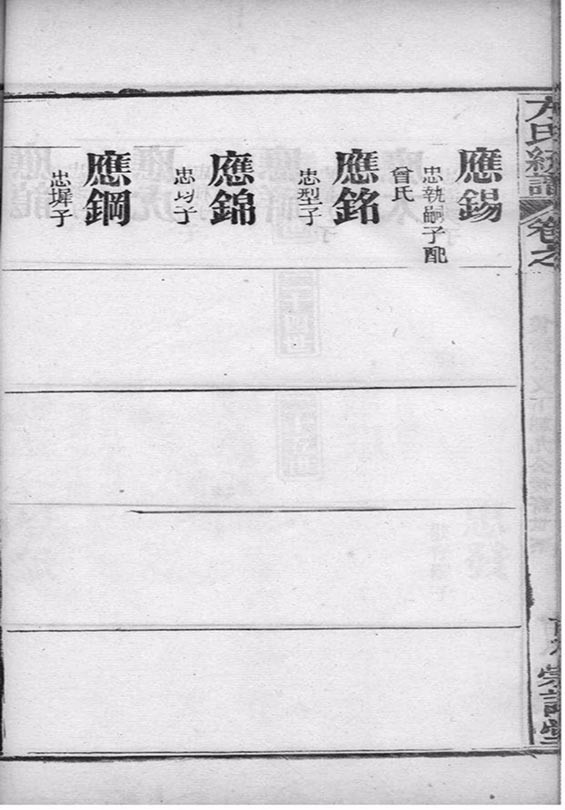 氏統譜
卷之
應錫
忠執嗣子配
曾氏
應銘
忠型子
應錦
忠均子
應鋼
忠墀子